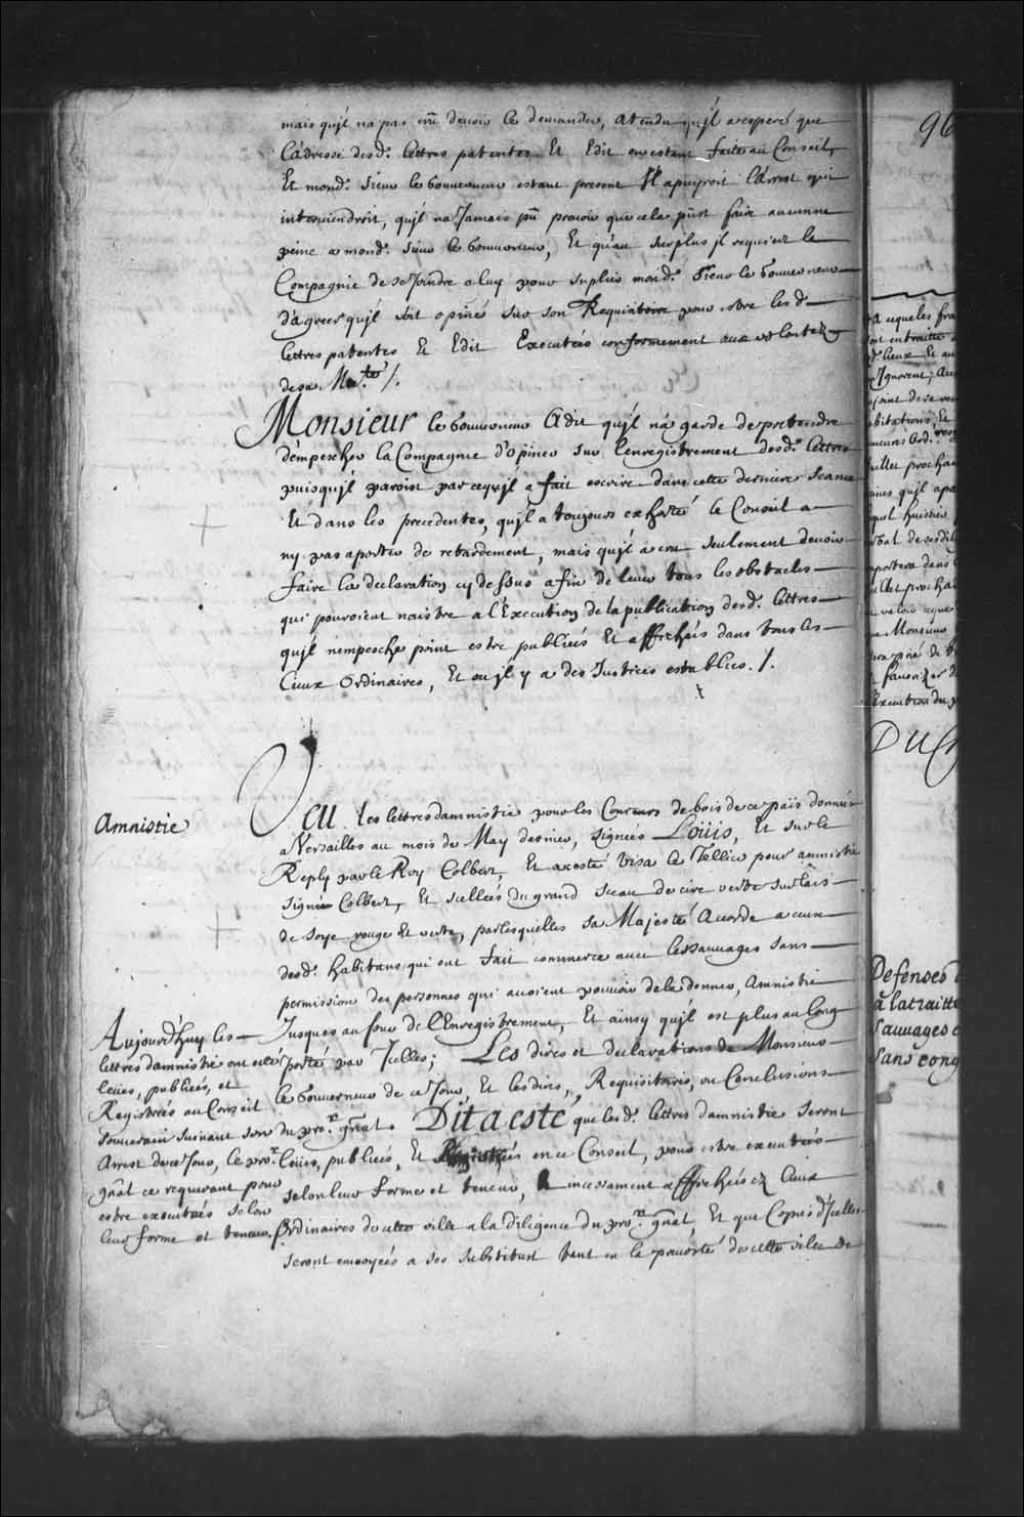 mais qu'jl na pas crû devoir le demander, atendu qu'jl a esperé que
L'adresse desd. lettres patentes Et Edit en estant faite au Conseil,
Et mond. sieur le Gouuerneur estant present Jl apuyroit l'arrest qui
interuiendroit, qu'jl na Jamais pû preuoir que cela pust faire aucunne
peine a mond. sieur le Gouuerneur, Et qu'au surplus jl requiert la
Compagnie de se Joindre a luy pour suplier mond. sieur le Gouuerneur
d'agreer qu'jl soit opiné sur son Requisitoire pour estre lesd.
lettres patentes Et Edit Executées conformement aux volontez
de sa Ma.té /.
Monsieur le Gouuerneur A dit qu'jl n'a garde de pretendre
d'empescher la Compagnie d'opiner sur l'enregistrement desd. lettres
puisqu'jl paroist par ce qu'jl a fait escrire dans cette derniere seance
Et dans les precedentes, qu'jl a toujours exhorté le Conseil a
ny pas aporter de retardement, mais qu'jl a cru seulement deuoir
faire la declaration cy dessus afin de leuer tous les obstacles
qui pouroient naistre a l'Execution de la publication desd. lettres
qu'jl nempesche point estre publiées Et affichées dans tous les
Lieux Ordinaires, Et ou jl y a des Justices establies. /.
Amnistie
Veu les lettres damnistie pour les Coureurs de bois de ce païs données
a Versailles au mois de May dernier, signées Loüis, Et sur le
Reply par le Roy Colbert, Et a costé visa le Tellier pour amnistie
signée Colbert, Et scellées du grand sceau de cire verte sur lacs
de soye rouge Et verte, par lesquelles sa Majesté Acorde a ceux
desd. habitans qui ont fait commerce auec les sauuages sans
permission des personnes qui auoient pouuoir de la donner, Amnistie
Jusques au Jour de l'Enregistrement, Et ainsy qu'jl est plus au long
porté par Jcelles; Les dires et declarations de Monsieur
le Gouuerneur de ce Jour, Et les dires, Requisitoires, ou Conclusions
du pro.r gñal. Dit a esté que lesd. lettres damnistie seront
Leües, publiées, Et Registrées en ce Conseil, pour estre executées
selon leur forme et teneur, incessament affichées ez Lieux
Ordinaires de cette ville a la diligence du pro.r gñal, Et que Copies d'Jcelles
seront enuoyées a ses substituts tant en la preuosté de cette ville de
Aujourd'huy les
lettres damnistie ont esté
leües, publiées, et
Registrées au Conseil
souuerain suiuant son
Arrest de ce Jour, le pro.r
gñal ce requerant pour
estre executées selon
leur forme et teneur.
96
Defenses
a la traitte
sauuages
sans cong